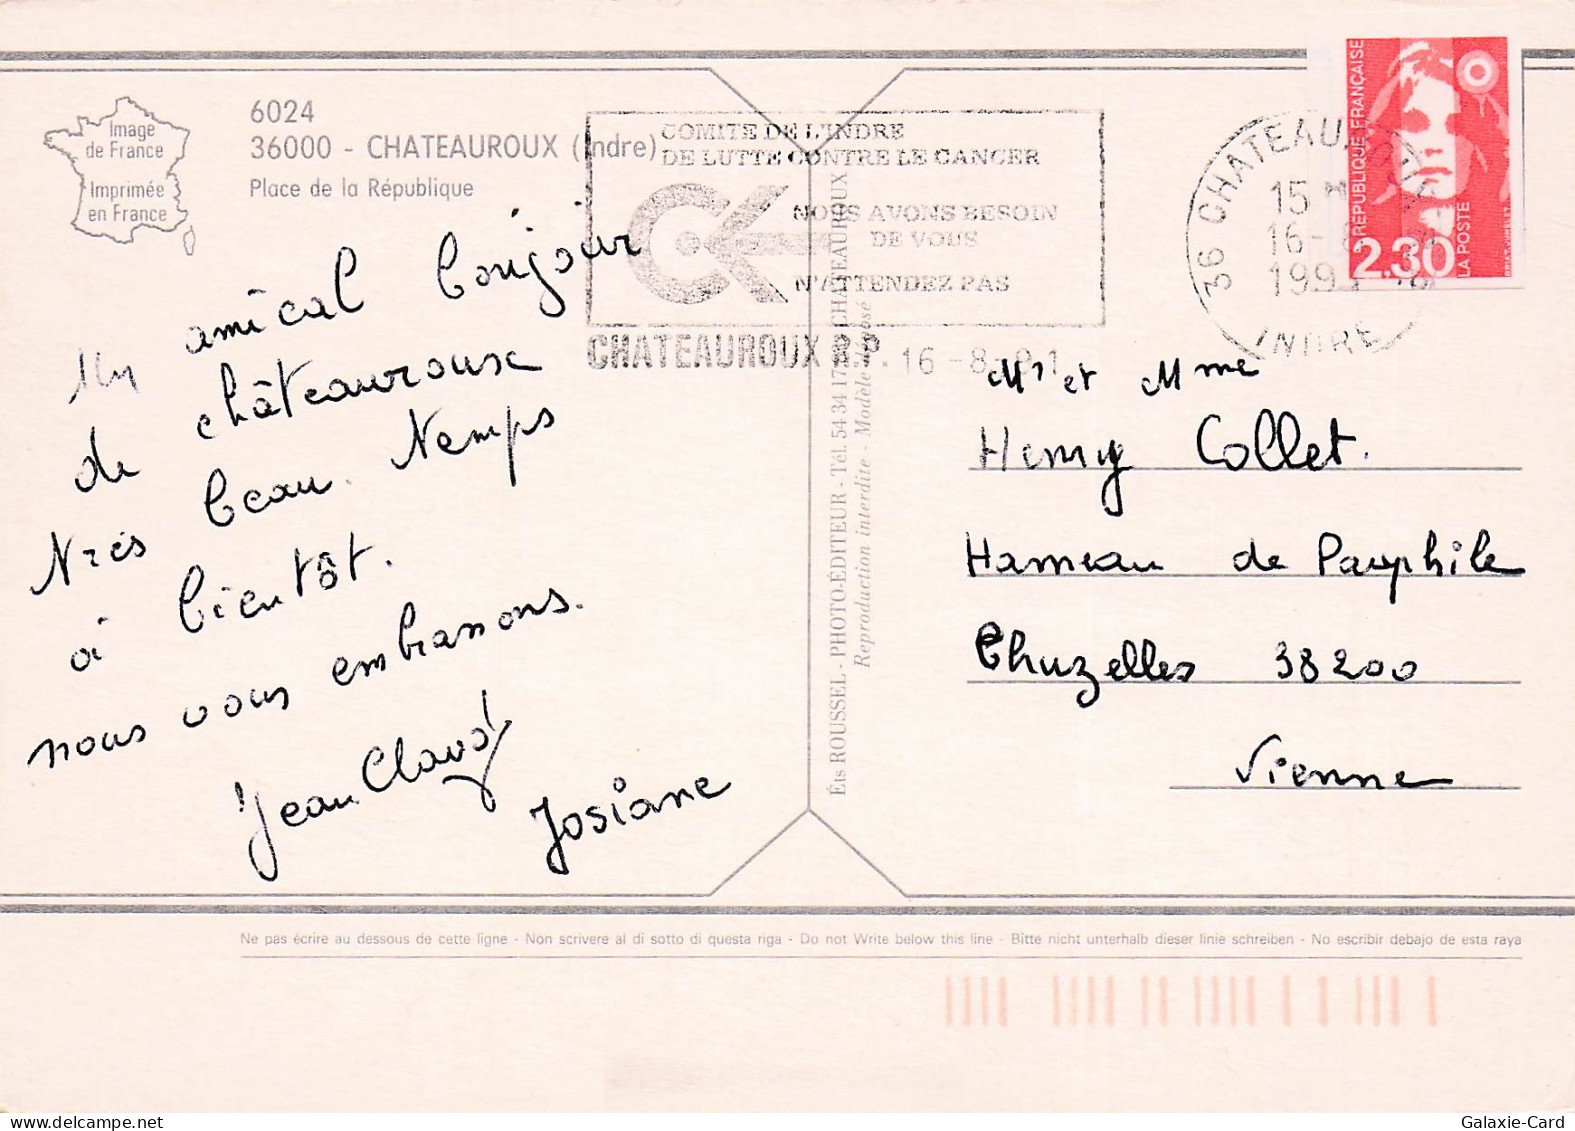 Image
de France
Imprimée
en France
6024
36000 - CHATEAUROUX (Indre)
Place de la République
COMITE DE L'INDRE
DE LUTTE CONTRE LE CANCER
NOUS AVONS BESOIN
DE VOUS
N'ATTENDEZ PAS
CHATEAUROUX R.P. 16-8-91
36 CHATEAUROUX
15
16-
199
INDRE
RÉPUBLIQUE FRANÇAISE
2.30
LA POSTE
Un amical bonjour
de châteauroux
très beau temps
à bientôt.
nous vous embrassons.
Jean Claud
Josiane
Éts ROUSSEL - PHOTO-ÉDITEUR - Tél. 54 34 17 CHATEAUROUX
Reproduction interdite - Modèle déposé
Mr et Mme
Henry Collet.
Hameau de Pauphile
Chuzelles 38200
Vienne
Ne pas écrire au dessous de cette ligne - Non scrivere al di sotto di questa riga - Do not Write below this line - Bitte nicht unterhalb dieser linie schreiben - No escribir debajo de esta raya
Galaxie-Card